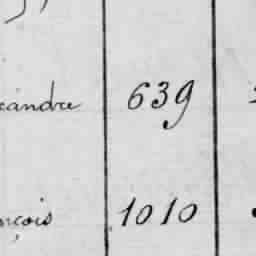 éandre 639
nçois 1010